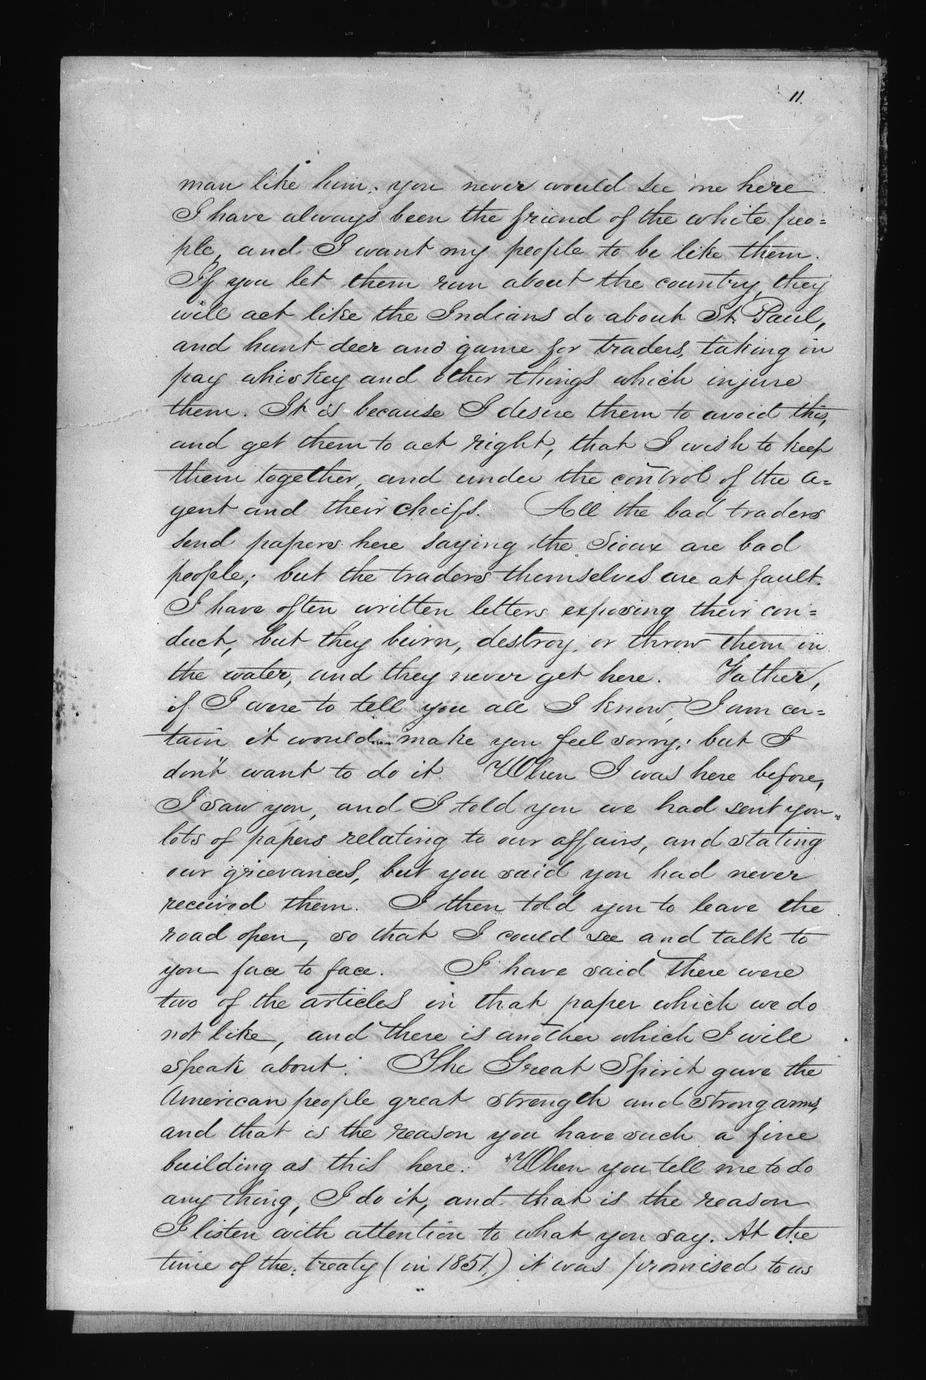 11.
man like him, you never would see me here
I have always been the friend of the white peo=
ple, and I want my people to be like them.
If you let them run about the country, they
will act like the Indians do about St. Paul,
and hunt deer and game for traders, taking in
pay whiskey and other things which injure
them. It is because I desire them to avoid this,
and get them to act right, that I wish to keep
them together, and under the control of the a=
gent and their chiefs. All the bad traders
send papers here saying the Sioux are bad
people; but the traders themselves are at fault.
I have often written letters exposing their con=
duct, but they burn, destroy, or throw them in
the water, and they never get here. Father,
if I were to tell you all I know, I am cer=
tain it would make you feel sorry; but I
don't want to do it When I was here before,
I saw you, and I told you we had sent you
lots of papers relating to our affairs, and stating
our grievances, but you said you had never
received them. I then told you to leave the
road open, so that I could see and talk to
you face to face. I have said there were
two of the articles in that paper which we do
not like, and there is another which I will
speak about. The Great Spirit gave the
American people great strength and strong arms,
and that is the reason you have such a fine
building as this here. When you tell me to do
any thing, I do it, and that is the reason
I listen with attention to what you say. At the
time of the treaty (in 1851.) it was promised to us